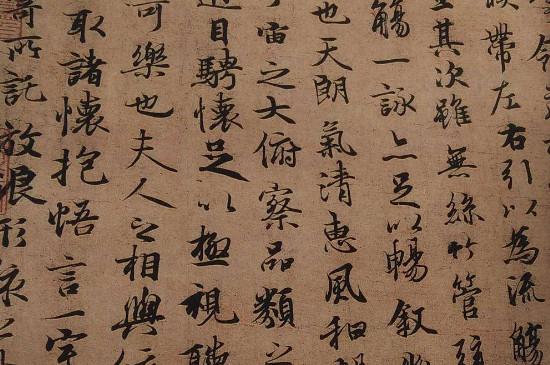 帶左右引以為流觴
其次雖無絲竹管
觴一詠亦足以暢叙
也天朗氣清惠風和
宙之大俯察品類之
目騁懷足以極視聽
可樂也夫人之相與
取諸懷抱悟言一室
寄所託放浪形骸之